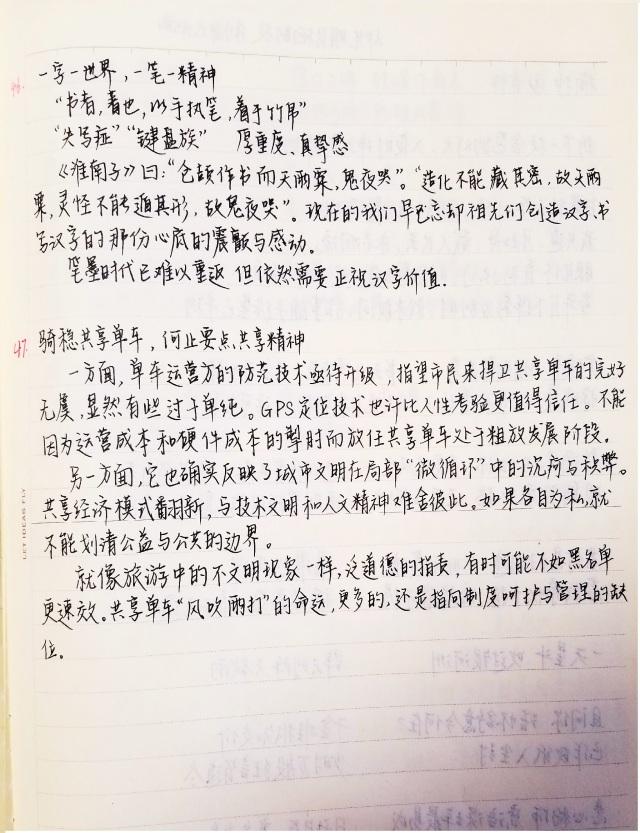 46.
一字一世界，一笔一精神
“书者，著也，以手执笔，着于竹帛”
“失写症”“键盘族” 厚重度、真挚感
《淮南子》曰：“仓颉作书而天雨粟，鬼夜哭”。“造化不能藏其密，故天雨
粟，灵怪不能遁其形，故鬼夜哭”。现在的我们早已忘却祖先们创造汉字、书
写汉字的那份心底的震颤与感动。
笔墨时代已难以重返 但依然需要正视汉字价值.
47. 骑稳共享单车，何止要点共享精神
一方面，单车运营方的防范技术亟待升级，指望市民来捍卫共享单车的完好
无虞，显然有些过于单纯。GPS定位技术也许比人性考验更值得信任。不能
因为运营成本和硬件成本的掣肘而放任共享单车处于粗放发展阶段。
另一方面，它也确实反映了城市文明在局部“微循环”中的沉疴与积弊。
共享经济模式翻新，与技术文明和人文精神难舍彼此。如果各自为私，就
不能划清公益与公共的边界。
就像旅游中的不文明现象一样，泛道德的指责，有时可能不如黑名单
更速效。共享单车“风吹雨打”的命运，更多的，还是指向制度呵护与管理的缺
位。
LET IDEAS FLY